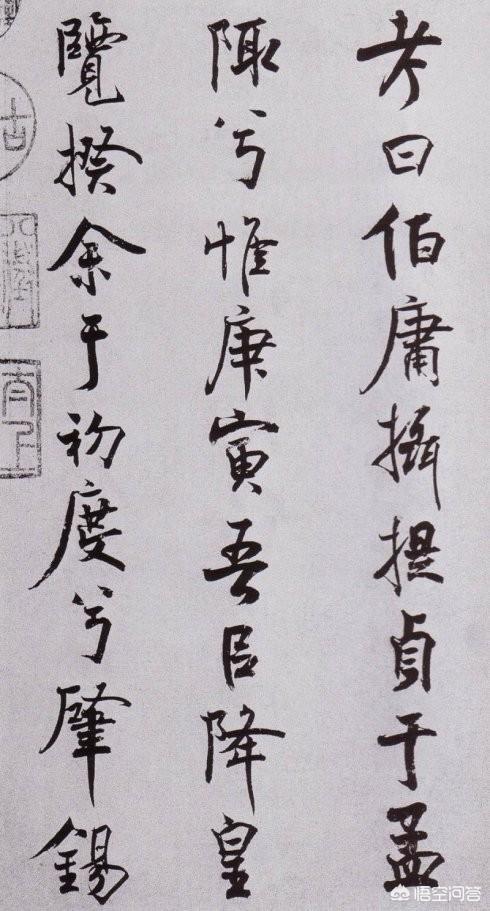 考曰伯庸攝提貞于孟
陬兮惟庚寅吾㠯降皇
覽揆余于初度兮肇錫
古
悟空问答